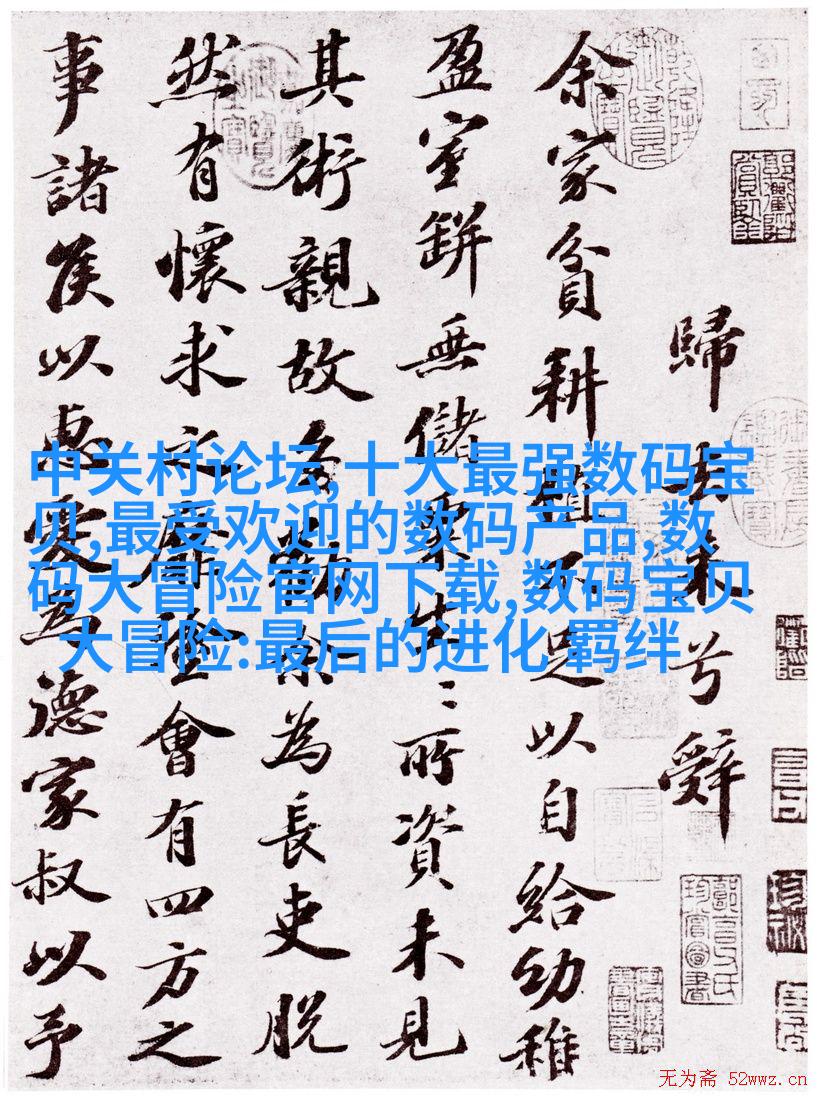 歸去來兮辭
余家貧耕植不足以自給幼稚
盈室缾無儲粟生〻所資未見
其術親故多勸余為長吏脫
然有懷求之靡途會有四方之
事諸侯以惠愛為德家叔以予
中关村论坛,十大最强数码宝
贝,最受欢迎的数码产品,数
码大冒险官网下载,数码宝贝
大冒险:最后的进化 羁绊
无为斋 52wwz.cn